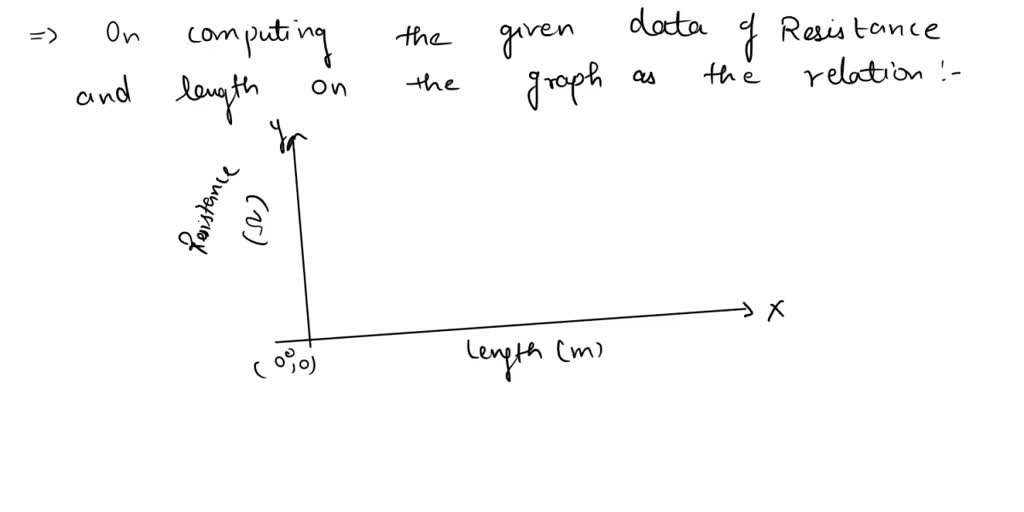 => On computing the given data of Resistance
and length on the graph as the relation :-
Y
Resistance
(Ω)
X
length (m)
(0,0)